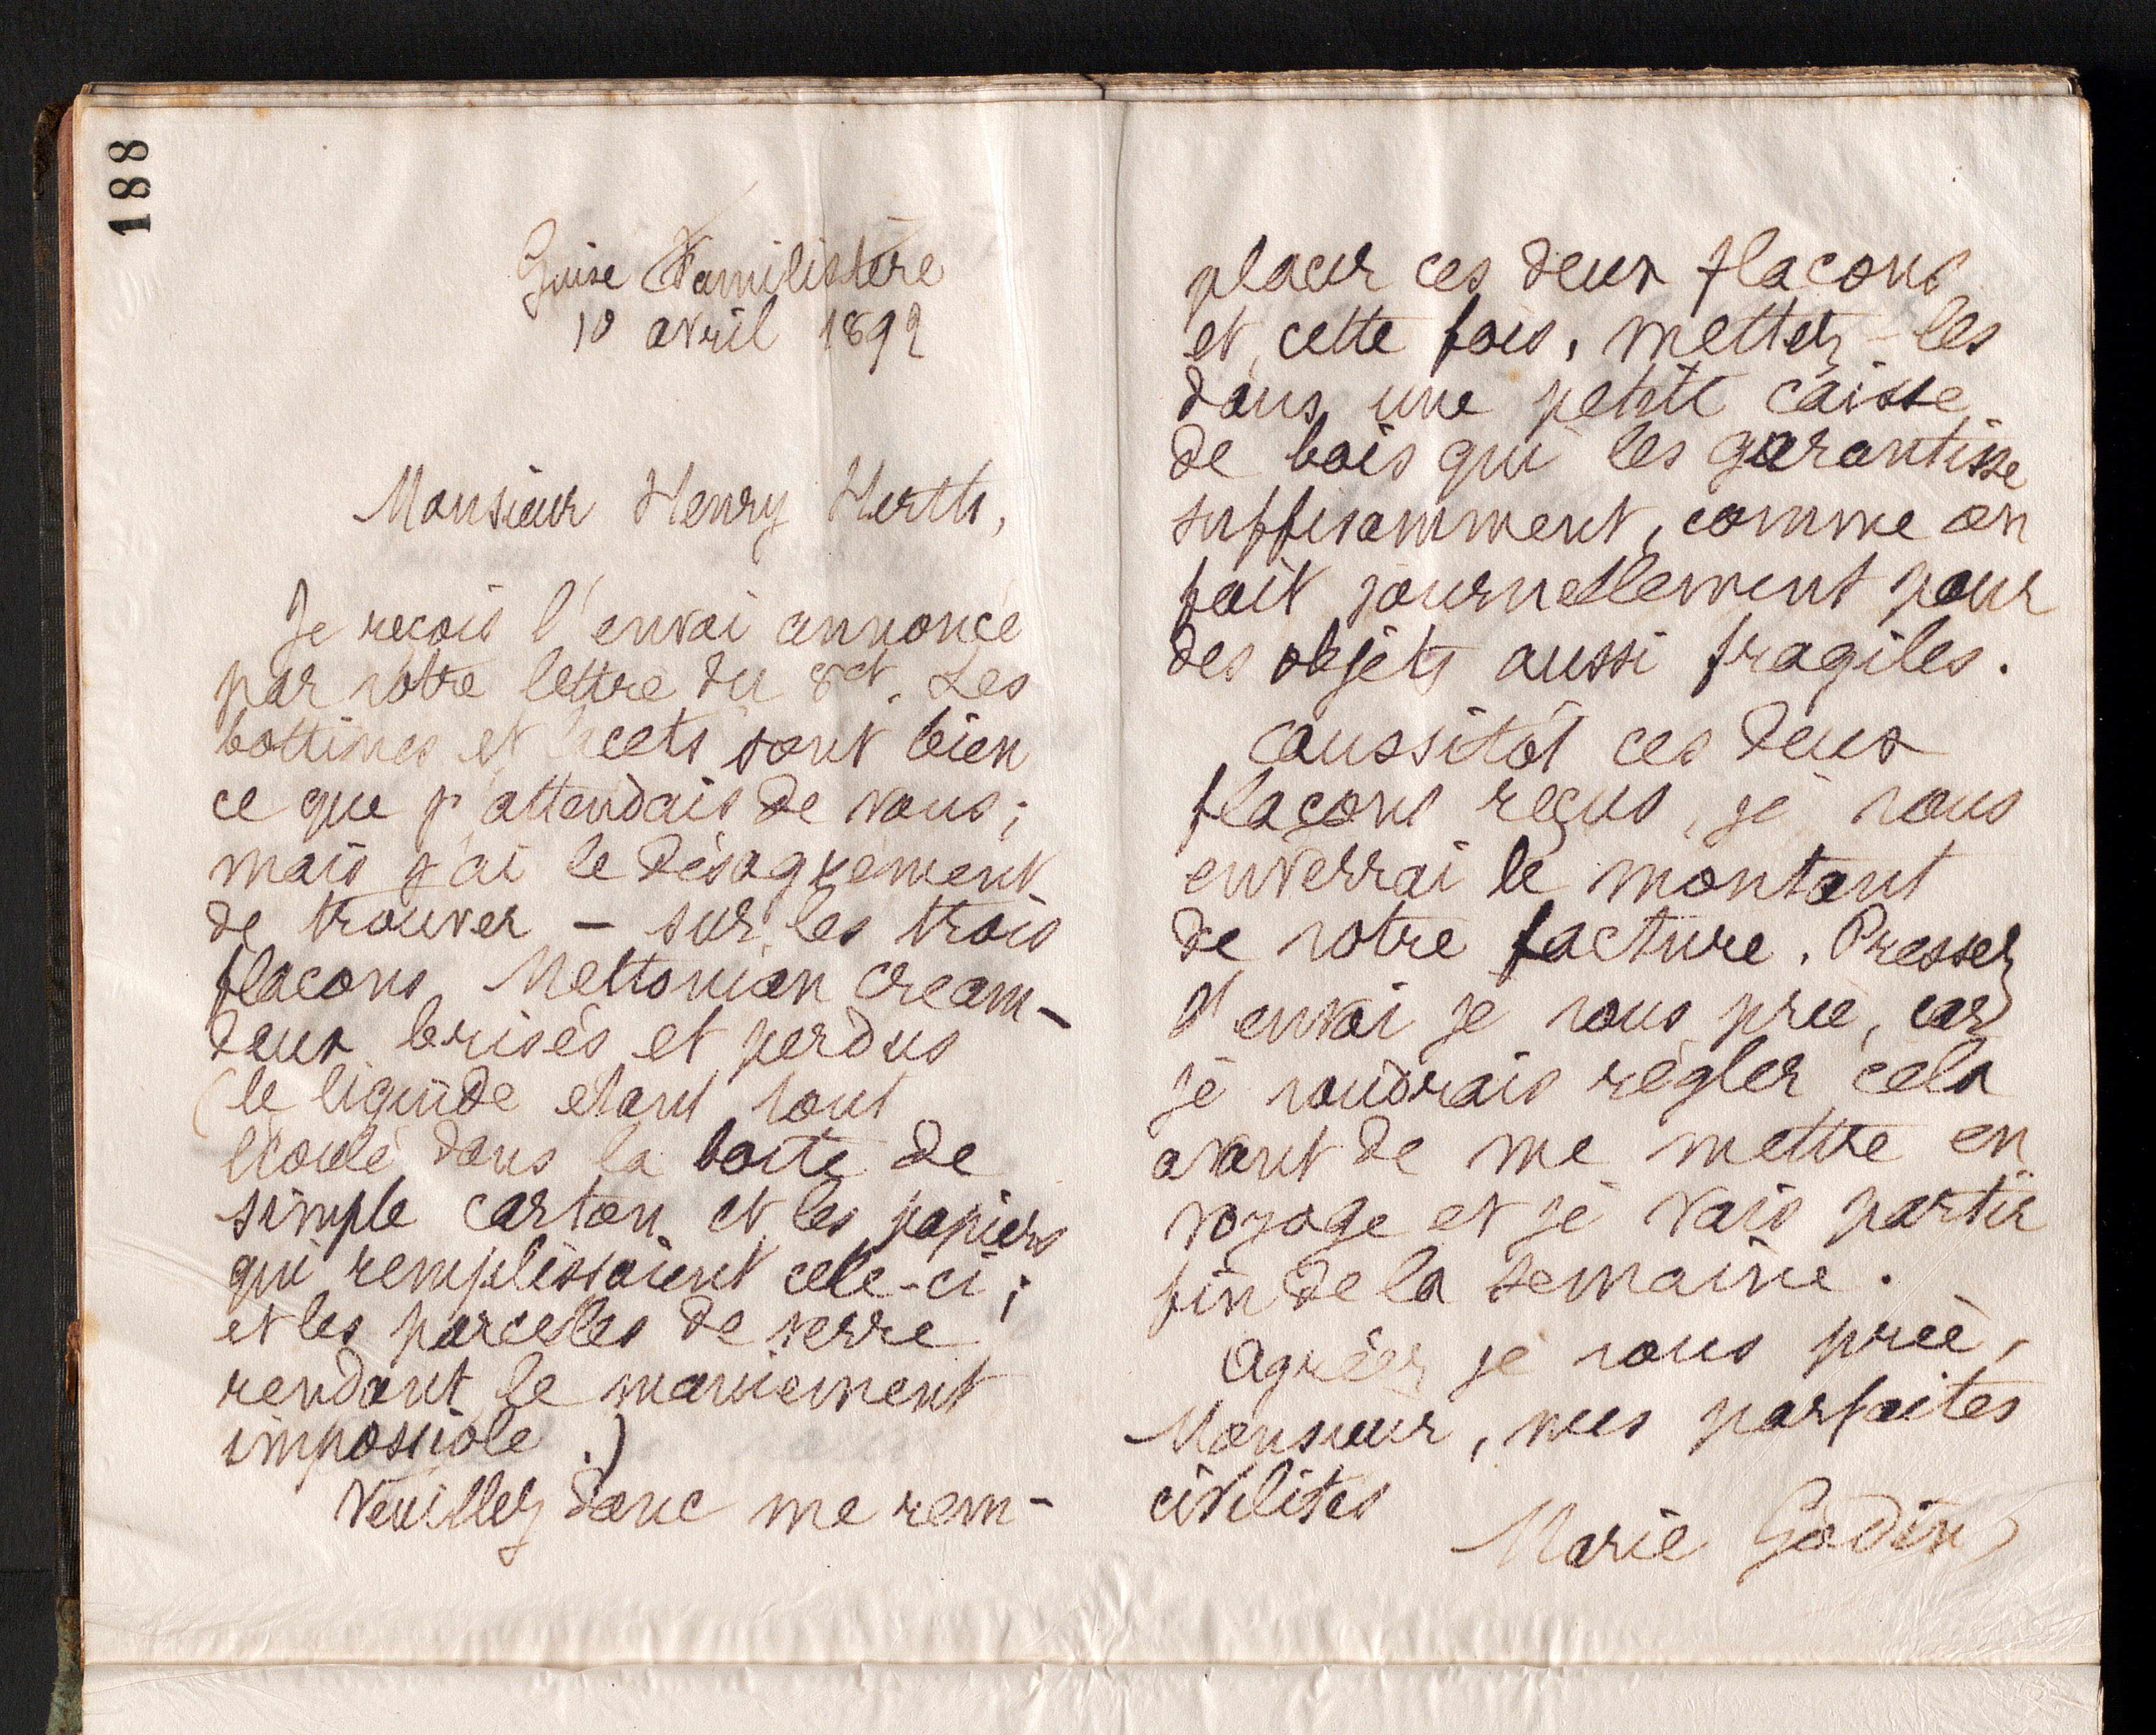 188
Guise Familistère
10 avril 1892
Monsieur Henry Herth,
Je reçois l'envoi annoncé
par votre lettre du 8 ct. Les
bottines et lacets sont bien
ce que j'attendais de vous ;
mais j'ai le désagrément
de trouver – sur les trois
flacons Meltonian cream –
deux brisés et perdus
(le liquide étant tout
écoulé dans la boite de
simple carton et les papiers
qui remplissaient celle-ci ;
et les parcelles de verre
rendant le maniement
impossible.)
Veuillez donc me rem-
placer ces deux flacons
et, cette fois, mettez-les
dans une petite caisse
de bois qui les garantisse
suffisamment, comme on
fait journellement pour
des objets aussi fragiles.
Aussitôt ces deux
flacons reçus, je vous
enverrai le montant
de votre facture. Pressez
l'envoi je vous prie, car
je voudrais régler cela
avant de me mettre en
voyage et je vais partir
fin de la semaine.
Agréez je vous prie,
Monsieur, mes parfaites
civilités
Marie Godin